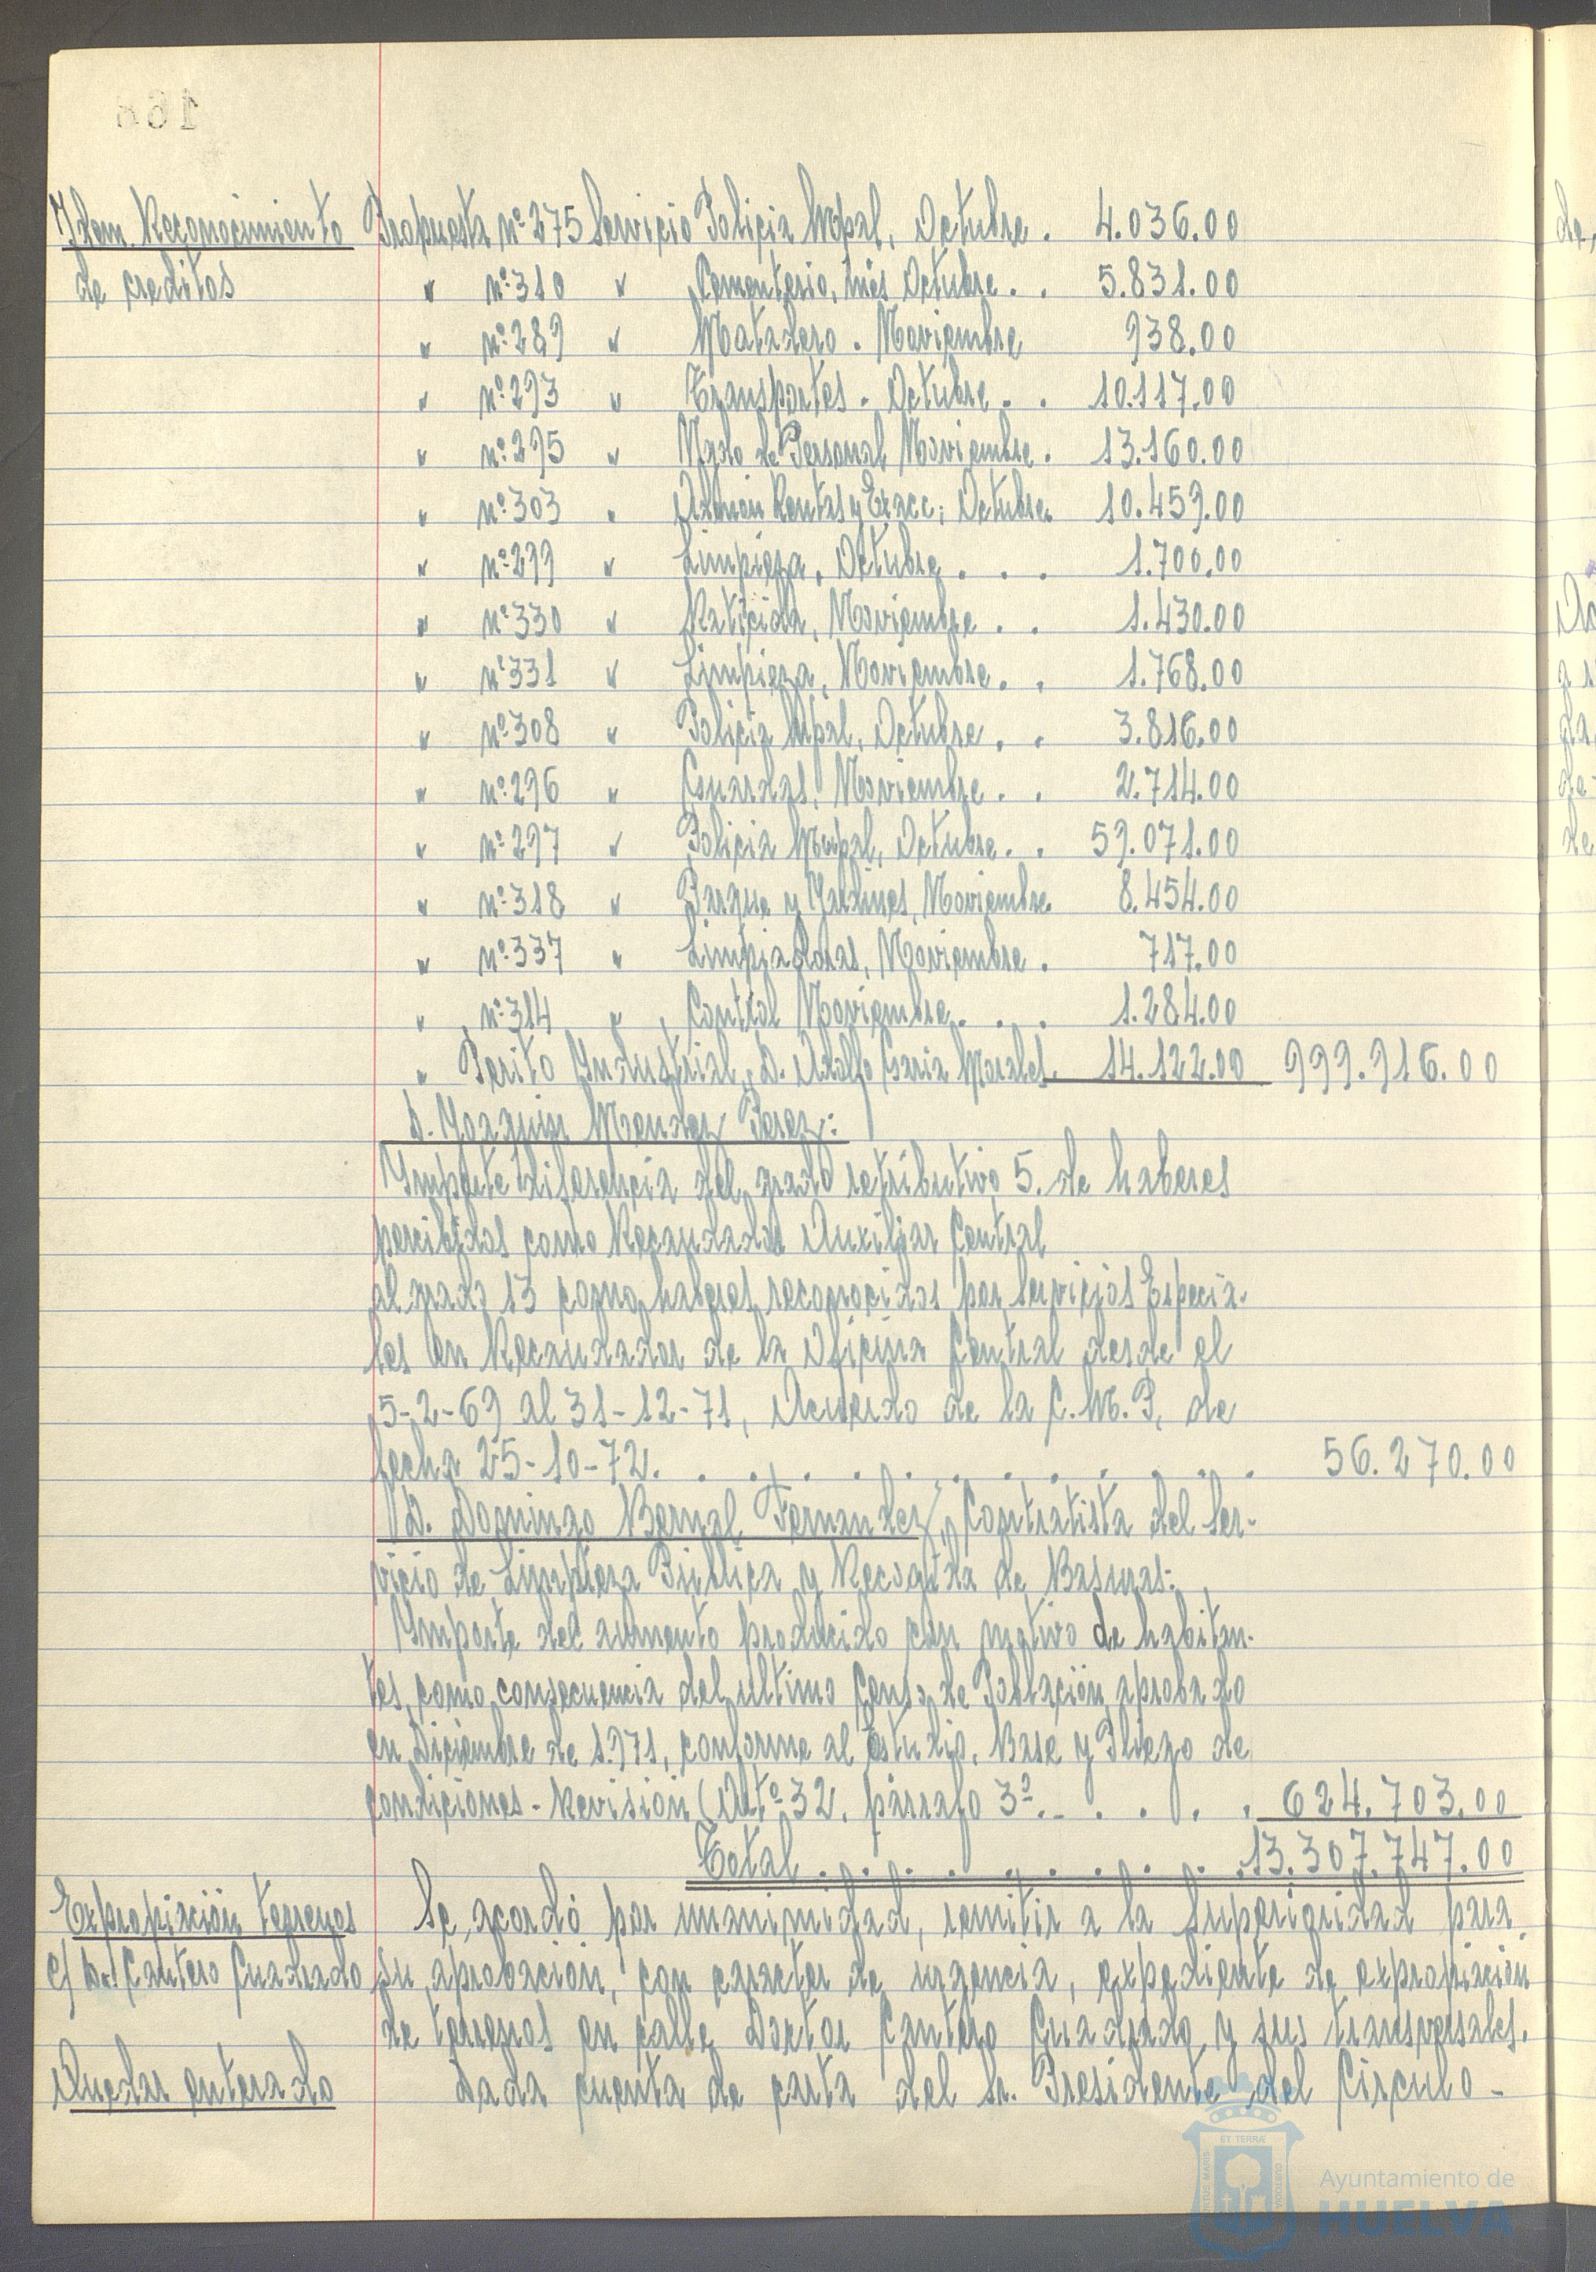 Idem. Reconocimiento Propuesta nº 275 Servicio Policia Mpal, Octubre. 4.036.00
de creditos " nº 310 " Cementerio, mes Octubre. . 5.831.00
" nº 289 " Matadero. Noviembre 938.00
" nº 293 " Transportes. Octubre. . 10.117.00
" nº 295 " Ngdo de Personal Noviembre. 13.160.00
" nº 303 " Admón Rentas y Exacc; Octubre. 10.459.00
" nº 299 " Limpieza, Octubre . . . 1.700.00
" nº 330 " Raticida, Noviembre . . 1.430.00
" nº 331 " Limpieza, Noviembre. . 1.768.00
" nº 308 " Policia Mpal, Octubre. . 3.816.00
" nº 296 " Guardas, Noviembre. . 2.714.00
" nº 297 " Policia Mupal, Octubre. . 59.071.00
" nº 318 " Parque y Jardines, Noviembre. 8.454.00
" nº 337 " Limpiadoras, Noviembre. 717.00
" nº 314 " Control Noviembre. . . 1.284.00
" Perito Industrial, D. Adolfo Garia Morales. 14.122.00 999.916.00
D. Joaquin Mendez Perez:
Importe diferencia del grado retributivo 5. de haberes
percibidos como Recaudador Auxiliar Central
al grado 13 como haberes reconocidos por Servicios Especia-
les en Recaudador de la Oficina Central desde el
5-2-69 al 31-12-71, Acuerdo de la C.M.P, de
fecha 25-10-72. . . . . . . . . . . . . 56.270.00
D. Domingo Bernal Fernandez, Contratista del Ser-
vicio de Limpieza Publica y Recogida de Basuras:
Importe del aumento producido con motivo de habitan-
tes, como consecuencia del ultimo Censo de Población aprobado
en Diciembre de 1.971, conforme al Estudio, Base y Pliego de
condiciones-Revisión (Artº 32, párrafo 3º. . . . . . 624.703.00
Total . . . . . . . . . . 13.307.747.00
Expropiación terrenos Se acordó por unanimidad, remitir a la Superioridad para
c/ Dr. Cantero Cuadrado su aprobación, con caracter de urgencia, expediente de expropiación
de terrenos en calle Doctor Cantero Cuadrado y sus transversales.
Quedar enterado Dada cuenta de carta del Sr. Presidente del Circulo-
Ayuntamiento de
HUELVA